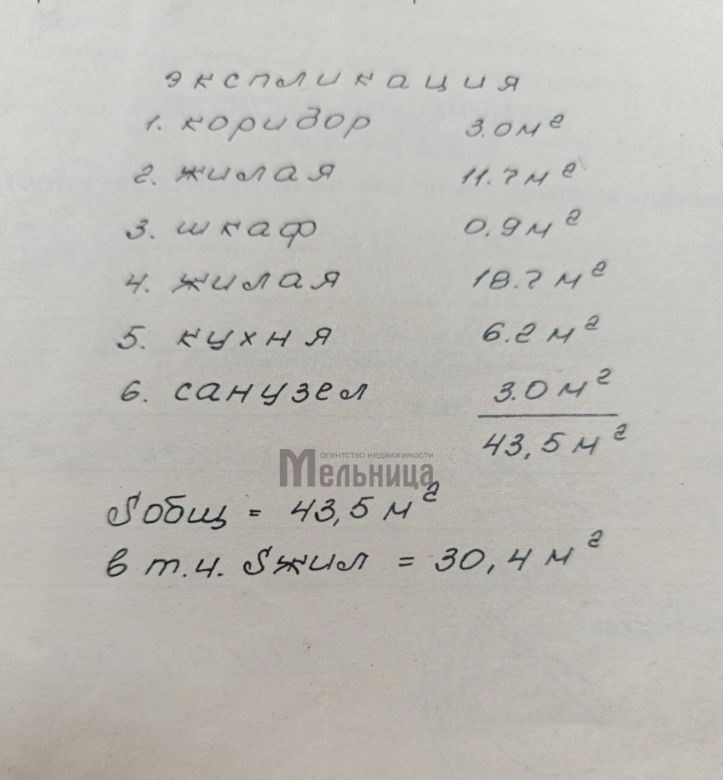 экспликация
1. коридор 3.0 м²
2. жилая 11.7 м²
3. шкаф 0,9 м²
4. жилая 18.7 м²
5. кухня 6.2 м²
6. санузел 3.0 м²
43,5 м²
агентство недвижимости
Мельница
Sобщ = 43,5 м²
в т.ч. Sжил = 30,4 м²